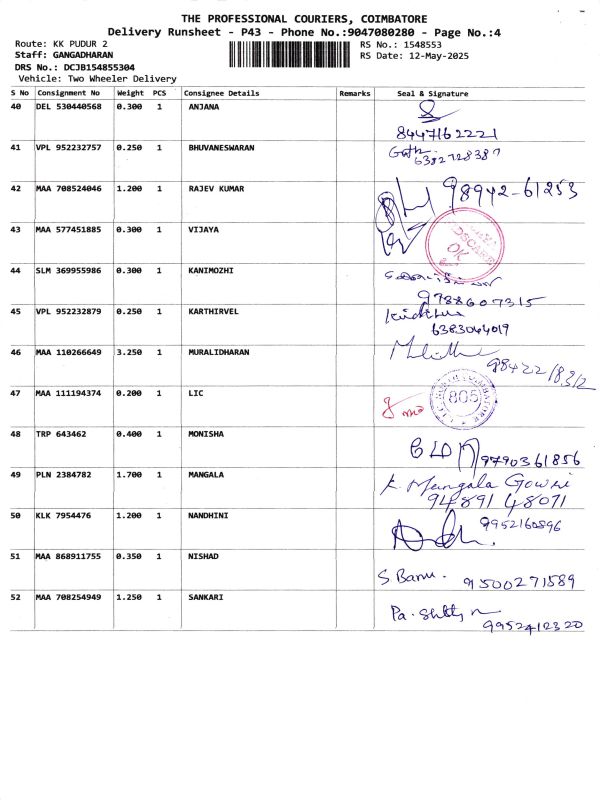 THE PROFESSIONAL COURIERS, COIMBATORE
Delivery Runsheet - P43 - Phone No.:9047080280 - Page No.:4
Route: KK PUDUR 2 RS No.: 1548553
Staff: GANGADHARAN RS Date: 12-May-2025
DRS No.: DCJB154855304
Vehicle: Two Wheeler Delivery
S No Consignment No Weight PCS Consignee Details Remarks Seal & Signature
40 DEL 530440568 0.300 1 ANJANA
8447162221
41 VPL 952232757 0.250 1 BHUVANESWARAN
6382728387
42 MAA 708524046 1.200 1 RAJEV KUMAR 98942-61253
43 MAA 577451885 0.300 1 VIJAYA
OK
44 SLM 369955986 0.300 1 KANIMOZHI
9788607315
45 VPL 952232879 0.250 1 KARTHIRVEL
6383044019
46 MAA 110266649 3.250 1 MURALIDHARAN
98422 18312
47 MAA 111194374 0.200 1 LIC
805
48 TRP 643462 0.400 1 MONISHA
9790361856
49 PLN 2384782 1.700 1 MANGALA K. Mangala Gowri
94891 48071
50 KLK 7954476 1.200 1 NANDHINI 9952160896
51 MAA 868911755 0.350 1 NISHAD
S Banu. 9500271589
52 MAA 708254949 1.250 1 SANKARI
9952412320